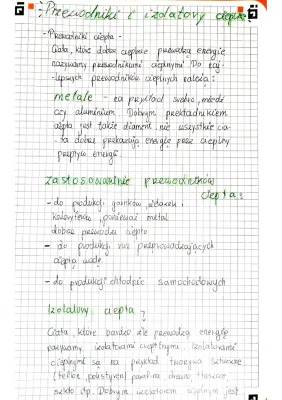 Przewodniki i izolatory ciepła
- Przewodniki ciepła -
Ciała, które dobrze cieplnie przewodzą energię
nazywamy przewodnikami cieplnymi. Do naj-
-lepszych przewodników cieplnych należą:
metale - na przykład srebro, miedź
czy aluminium. Dobrym przekładnikiem
ciepła jest także diament, nie wszystkie cia-
ła dobrze przekazują energię przez cieplny
przepływ energii.
Zastosowanie przewodników
ciepła:
- do produkcji garnków, i
kaloryferów, ponieważ metal
dobrze przewodzi ciepło
- do produkcji rur przeprowadzających
ciepłą wodę
- do produkcji chłodnic samochodowych
Izolatory ciepła?
Ciała, które bardzo źle przewodzą energię
nazywamy izolatorami cieplnymi. Izolatorami
cieplnymi są na przykład tworzywa sztuczne
(teflon, polistyren) parafina drewno, tłuszcze,
szkło itp. Dobrym izolatorem cieplnym jest